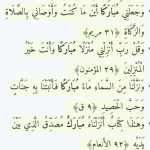 وَجَعَلَنِي مُبَارَكًا أَيْنَ مَا كُنْتُ وَأَوْصَانِي بِالصَّلَاةِ
وَالزَّكَاةِ ﴿٣١ مريم﴾
وَقُلْ رَبِّ أَنْزِلْنِي مُنْزَلًا مُبَارَكًا وَأَنْتَ خَيْرُ
الْمُنْزِلِينَ ﴿٢٩ المؤمنون﴾
وَنَزَّلْنَا مِنَ السَّمَاءِ مَاءً مُبَارَكًا فَأَنْبَتْنَا بِهِ جَنَّاتٍ
وَحَبَّ الْحَصِيدِ ﴿٩ ق﴾
وَهَذَا كِتَابٌ أَنْزَلْنَاهُ مُبَارَكٌ مُصَدِّقُ الَّذِي بَيْنَ
يَدَيْهِ ﴿٩٢ الأنعام﴾